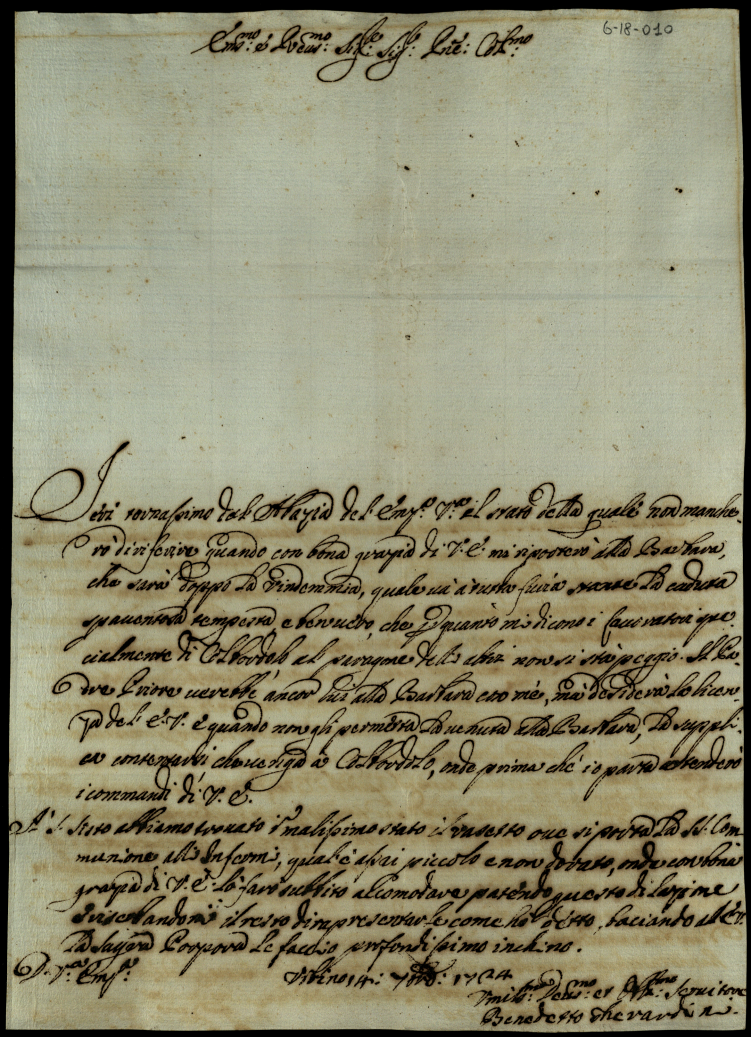 6-18-010
Em.mo e Reve.mo Sig.re Sig.re Pne: Col.mo
Ieri tornassimo dal Abazia del Em.o V.ro il stato della quale non manche-
rò di riferire quando con bona grazia di V. E. mi riporterò alla Barbara,
che sarà doppo la Vindemmia, quale và à tutta furia stante la caduta
spaventosa tempesta e ben vero, che p quanto mi dicono i lavoratori spe-
cialmente di Colbordolo al paragone delli altri non si stà peggio. Il Pa-
dre Priore verebbe ancor lui alla Barbara con mè, mà desidera la licen-
za del E. V. e quando non gli permetta la venuta alla Barbara, la suppli-
ca contentarsi che venga à Colbordolo, onde prima che io parta attenderò
i commandi di V. E.
A S. Sisto abbiamo trovato in malissimo stato il vasetto ove si porta la SS. Com-
munione alli Infermi, qual'è assai piccolo e non dorato, onde con bona
grazia di V. E. lo farò subbito accomodare patendo questo di lazione
riserbandomi il resto di rapresentarle come hò detto, baciando all'E. V.
la sagra Porpora le faccio profondissimo inchino.
D. V.ra Em.za
Urbino 14: 7bre: 1724
Umil.mo Dev.mo et Obl.mo Servitore
Benedetto Gherardin